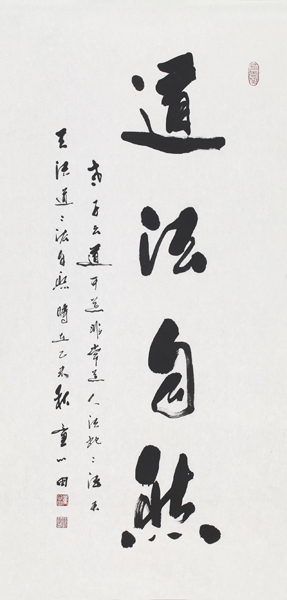 道法自然
老子云道可道非常道人法地〻法天
天法道〻法自然時在乙未秋重山田